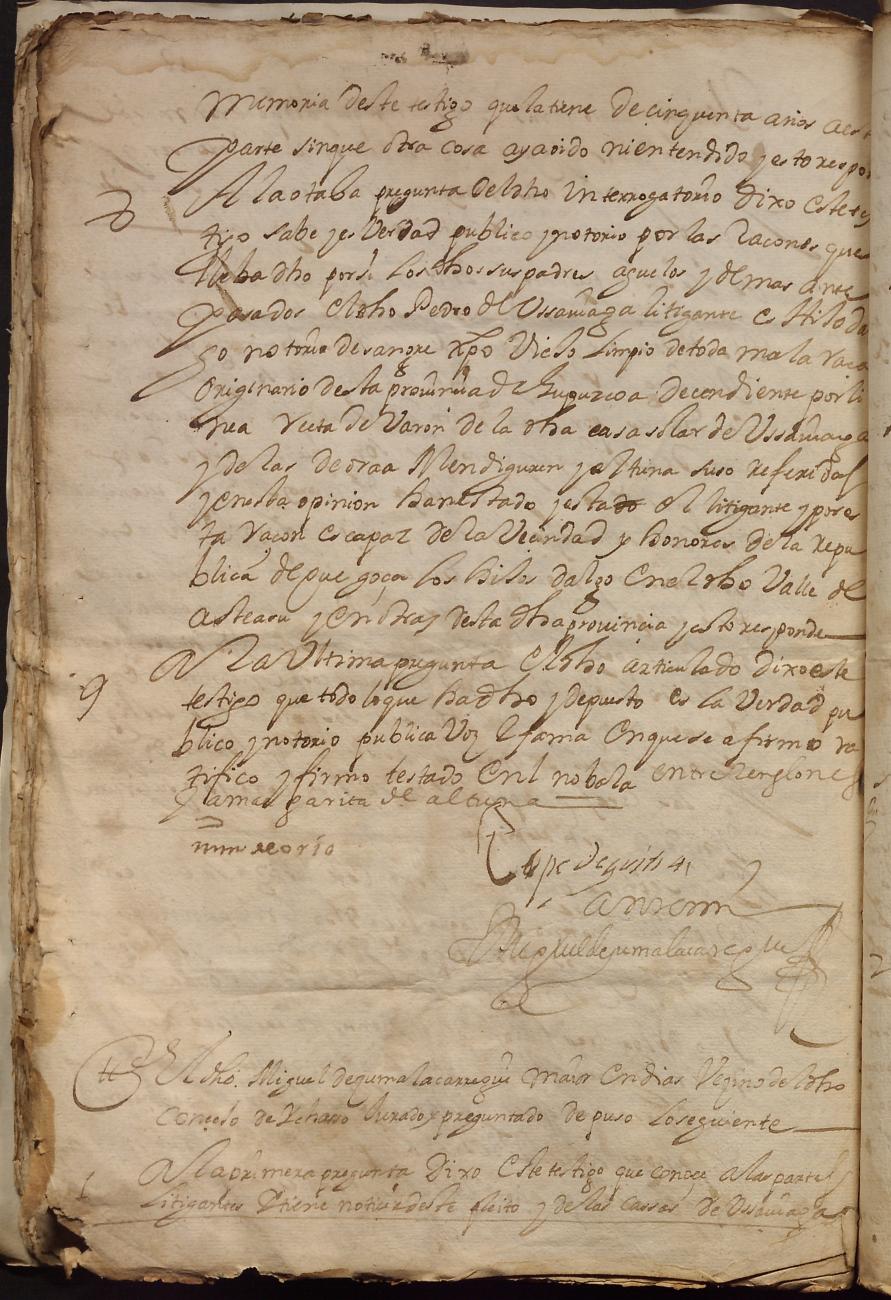 memoria deste testigo que la tiene de cinquenta anos a est
parte sin que otra cosa aya oido ni entendido y esto respo
8 A la otaba pregunta del dho interrogatorio dixo este tes
tigo sabe y es Verdad publico y notorio por las racones que
lleba dho por si los dhos sus padres aguelos y demas ante
pasados el dho Pedro de Ussarraga litigante es Hijo da
go notorio de sangre xpo Viejo limpio de toda mala raca
originario desta provincia de Guipuzcoa decendiente por li
nea recta de Varon de la dha casa solar de Ussarraga
y de las de oraa Mendiguren y altuna suso referidas
y en esta opinion han estado y estado el litigante y por es
ta racon es capaz de la Vecindad y honores de la repu
blica de que goça los hijos dalgo en el dho Valle de
asteasu y en otras desta dha provincia y esto responde
9 A la Ultima pregunta el dho articulado dixo este
testigo que todo lo que ha dho y depuesto es la Verdad pu
blico y notorio publica Voz e fama en que se afirmo ra
tifico y firmo testado en l no bala entre renglones
y a margarita de altuna

Lope de
ante mi
Miguel de gumalacarregui
tt El dho Miguel de gumalacarregui maior en dias Vezino del dho
Concejo de Ychaso Jurado y preguntado depuso lo seguiente
1 A la primera pregunta Dixo este testigo que conoçe a las partes
litigantes e tiene noticia deste pleito y de las cassas de Ussarraga